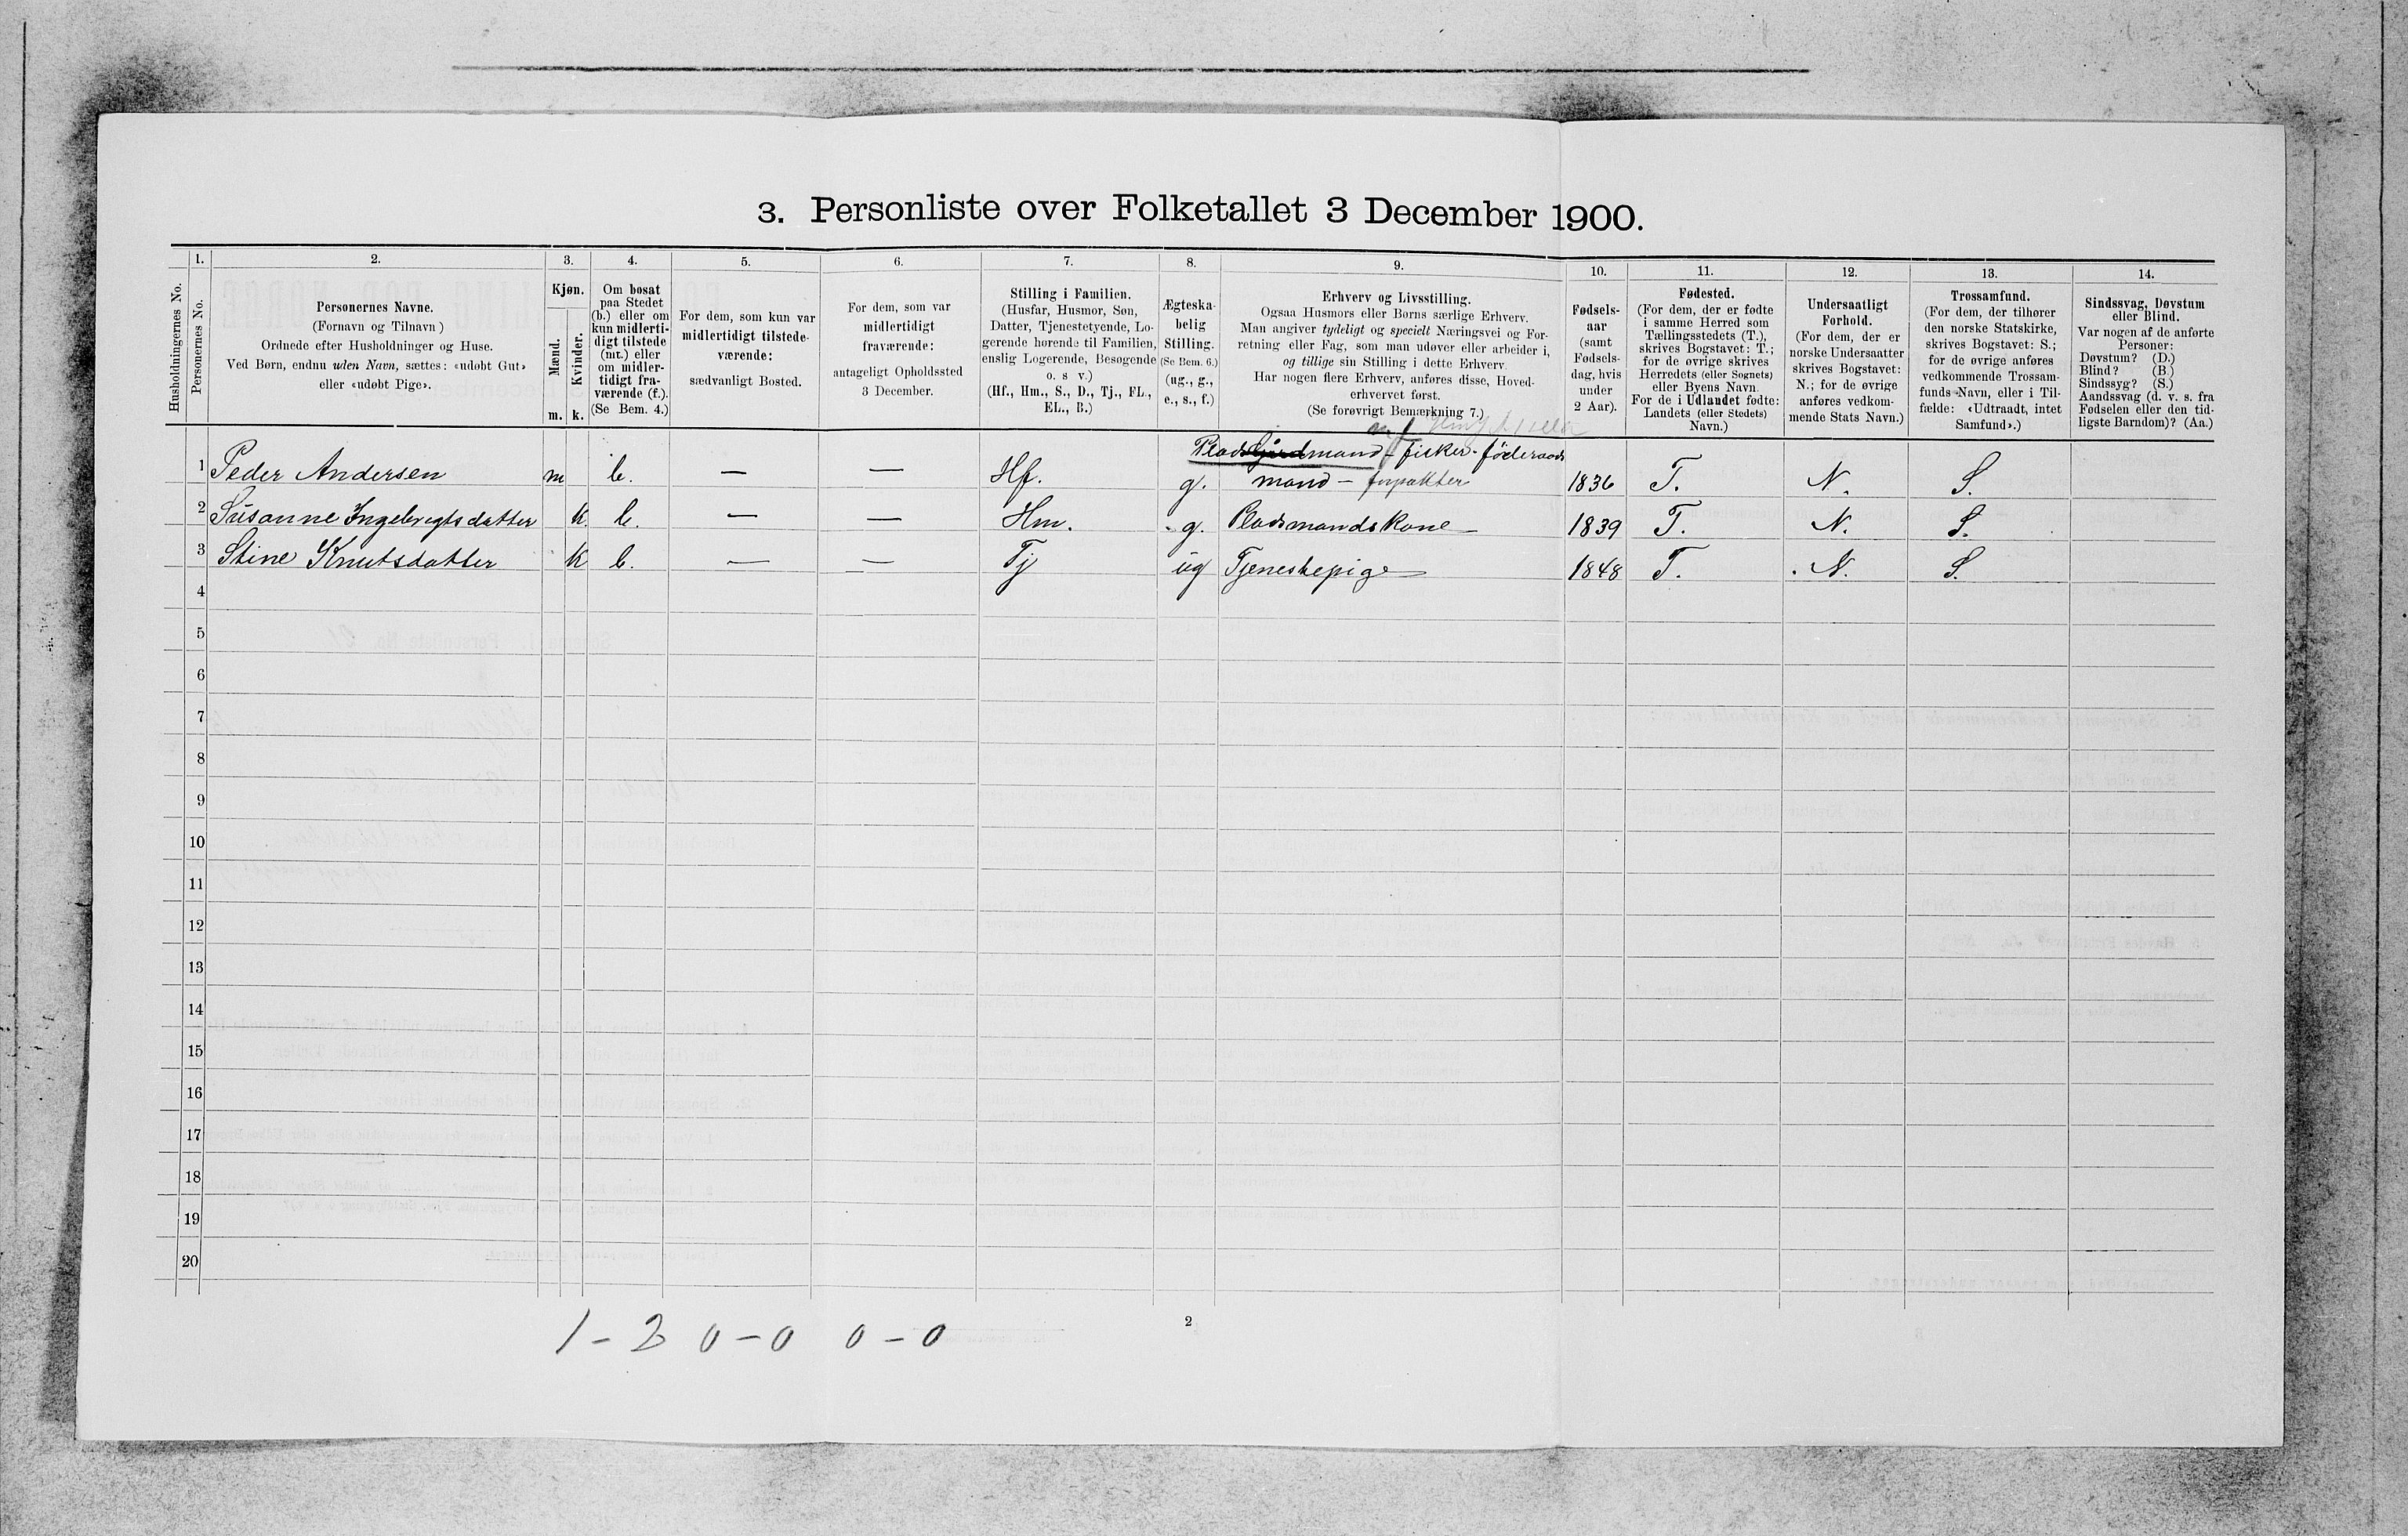 3. Personliste over Folketallet 3 December 1900.
Husholdningernes No.
1.
Personernes No.
2.
Personernes Navne.
(Fornavn og Tilnavn )
Ordnede efter Husholdninger og Huse.
Ved Børn, endnu uden Navn, sættes: «udøbt Gut»
eller «udøbt Pige».
3.
Kjøn.
Mænd.
m.
Kvinder.
k.
4.
Om bosat
paa Stedet
(b.) eller om
kun midlerti-
digt tilstede
(mt.) eller
om midler-
tidigt fra-
værende (f.).
(Se Bem. 4.)
5.
For dem, som kun var
midlertidigt tilstede-
værende:
sædvanligt Bosted.
6.
For dem, som var
midlertidigt
fraværende:
antageligt Opholdssted
3 December.
7.
Stilling i Familien.
(Husfar, Husmor, Søn,
Datter, Tjenestetyende, Lo-
gerende hørende til Familien,
enslig Logerende, Besøgende
o. s v.)
(Hf., Hm., S., D., Tj., FL.,
EL., B.)
8.
Ægteska-
belig
Stilling.
(Se Bem. 6.)
(ug., g.,
e., s., f.)
9.
Erhverv og Livsstilling.
Ogsaa Husmors eller Børns særlige Erhverv.
Man angiver tydeligt og specielt Næringsvei og For-
retning eller Fag, som man udøver eller arbeider i,
og tillige sin Stilling i dette Erhverv.
Har nogen flere Erhverv, anføres disse, Hoved-
erhvervet først.
(Se forøvrigt Bemærkning 7.)
10.
Fødsels-
aar
(samt
Fødsels-
dag, hvis
under
2 Aar).
11.
Fødested.
(For dem, der er fødte
i samme Herred som
Tællingsstedets (T.),
skrives Bogstavet: T.;
for de øvrige skrives
Herredets (eller Sognets)
eller Byens Navn.
For de i Udlandet fødte:
Landets (eller Stedets)
Navn.)
12.
Undersaatligt
Forhold.
(For dem, der er
norske Undersaatter
skrives Bogstavet:
N.; for de øvrige
anføres vedkom-
mende Stats Navn.)
13.
Trossamfund.
(For dem, der tilhører
den norske Statskirke,
skrives Bogstavet: S.;
for de øvrige anføres
vedkommende Trossam-
funds-Navn, eller i Til-
fælde: «Udtraadt, intet
Samfund».)
14.
Sindssvag, Døvstum
eller Blind.
Var nogen af de anførte
Personer:
Døvstum? (D.)
Blind? (B.)
Sindssyg? (S.)
Aandssvag (d. v. s. fra
Fødselen eller den tid-
ligste Barndom)? (Aa.)
Plads Gårdmand - fisker - föderaads
1 Peder Andersen m b. — — Hf. g. mand — forpakter 1836 T. N. S.
2 Susanne Ingebregtsdatter k b. — — Hm. g. Pladsmandskone 1839 T. N. S.
3 Stine Knutsdatter k b. — — Tj ug Tjenestepige 1848 T. N. S.
4
5
6
7
8
9
10
11
12
13
14
15
16
17
18
19
20
1 - 2 0 - 0 0 - 0
2